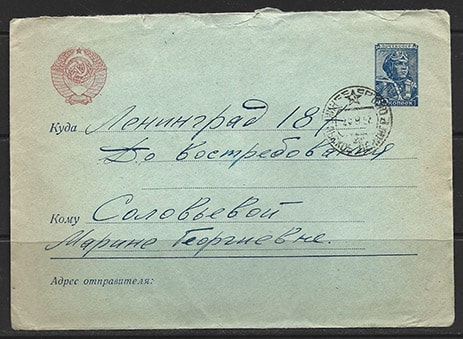 Куда Ленинград 18
До востребования
Кому Соловьевой
Марине Георгиевне.
Адрес отправителя: